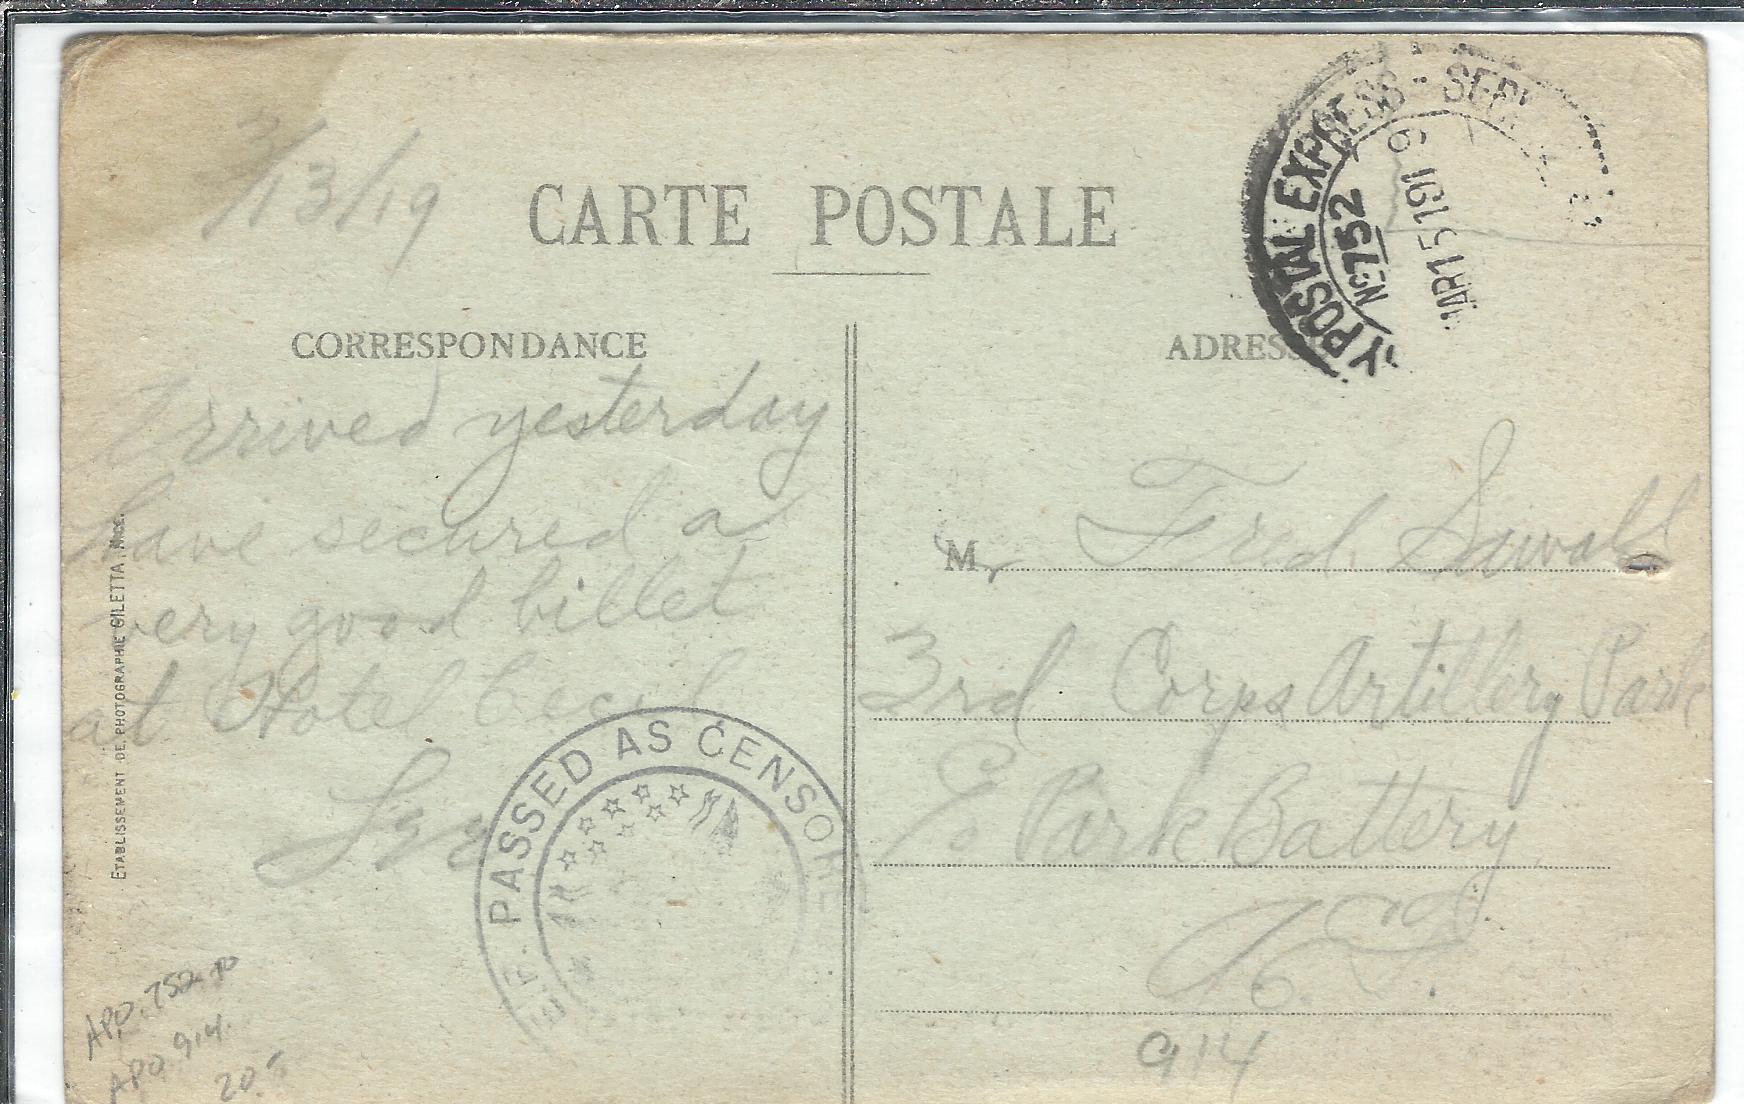 3/13/19
CARTE POSTALE
Y POSTAL EXPRESS - SER
No 752
MAR 15 1919
CORRESPONDANCE
ADRESS
Arrived yesterday
have secured a
very good billet
at Hotel Cecil
PASSED AS CENSORE
E.F.
ETABLISSEMENT DE PHOTOGRAPHIE GILETTA, NICE.
Mr Fred.
3rd Corps Artillery Park
Park Battery
914
APO 752 to
APO 914
20.-